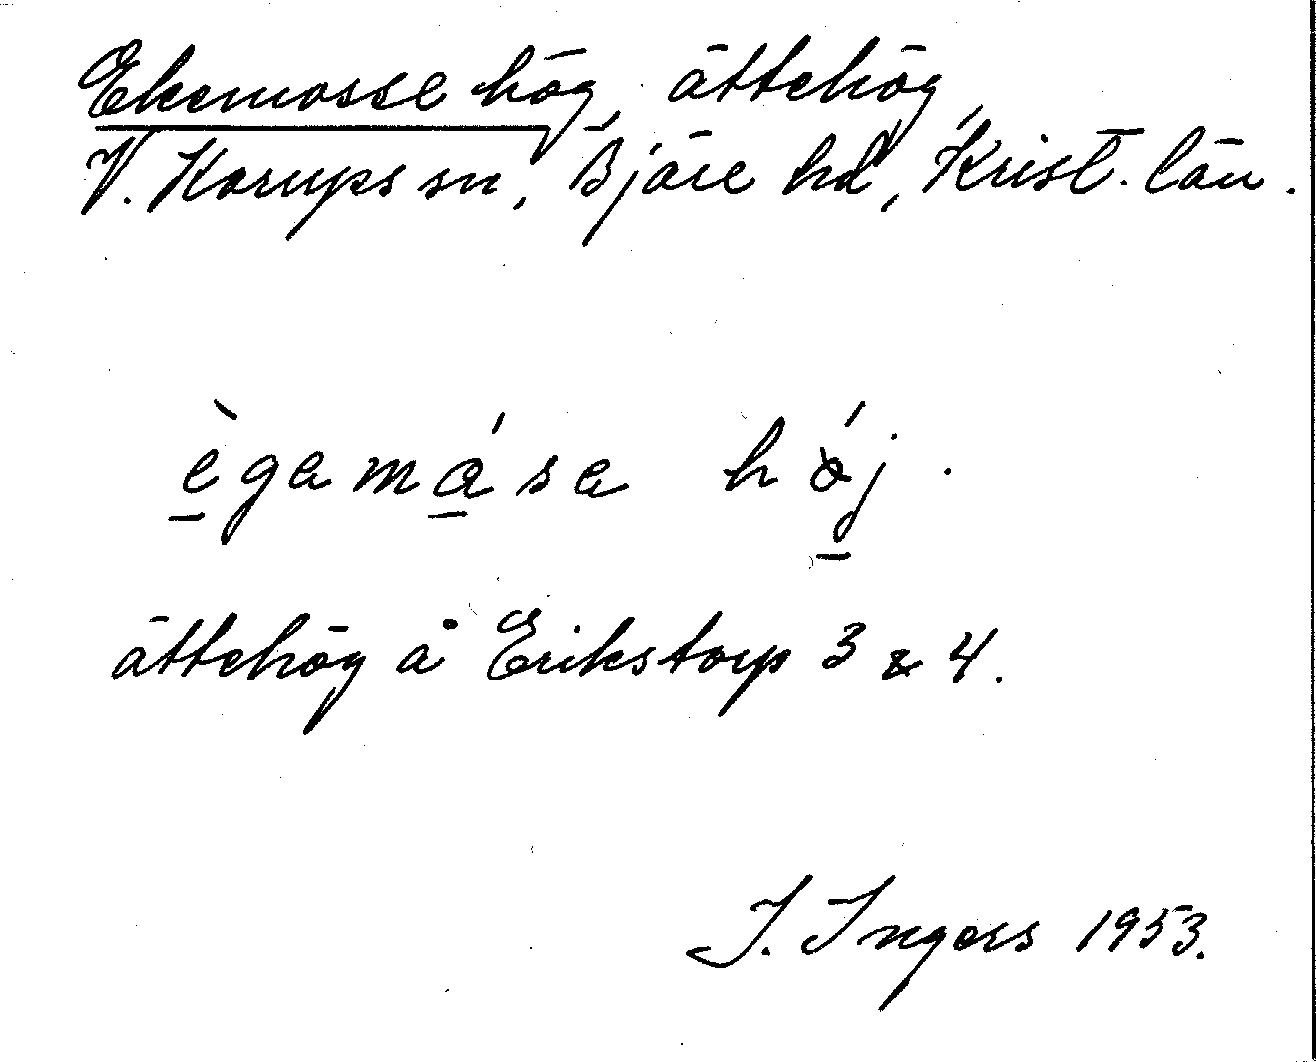 Ekemosse hög, ättehög,
V. Karups sn, Bjäre hd, Krist. län.
ègamása hǿj.
ättehög å Erikstorp 3 & 4.
I. Ingers 1953.